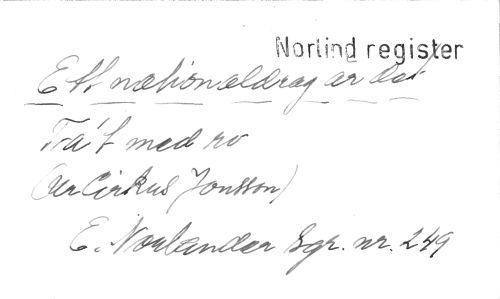 Norlind register
Ett nationaldrag är det
Ta't med ro
(ur Cirkus Jonsson)
E. Norlander Sgr. nr. 249